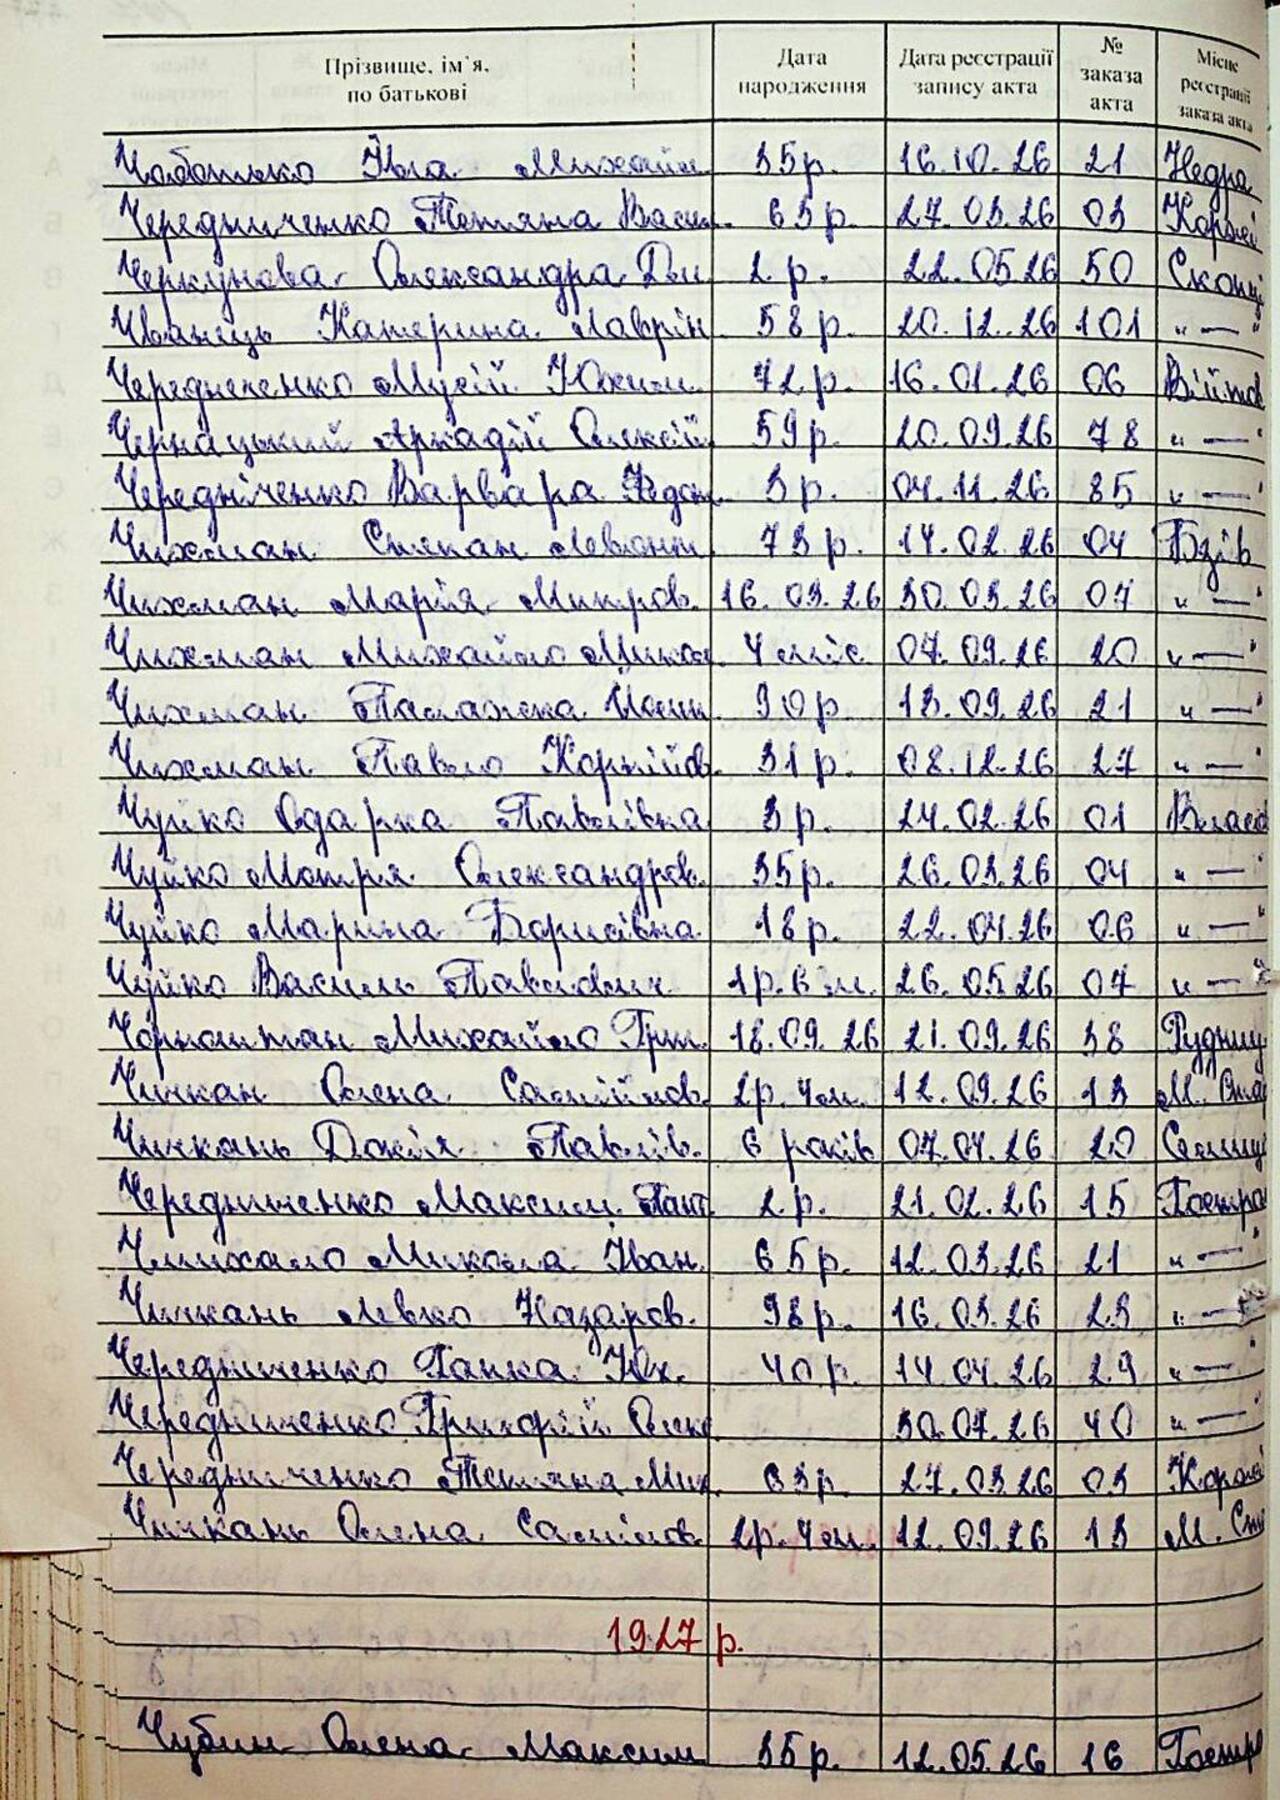 Прізвище, ім'я, по батькові Дата народження Дата реєстрації запису акта № заказа акта Місце реєстрації заказа акта
Їна Михайл. 35р. 16.10.26 21 Недра
Чередниченко Тетяна Васил. 63р. 27.03.26 03 Коржі
Черкунова Олександра Дм. 2.р. 22.05.26 50 Скопц
Чванець Катерина Лаврін 58р. 20.12.26 101 " — "
Чередниченко Мусій Юхим. 72р. 16.01.26 06 Війтов
Чернацький Аркадій Олексій 59р. 20.09.26 78 " — "
Чередніченко Варвара Федон. 3р. 04.11.26 85 " — "
Чихман Степан Левонт. 73р. 14.02.26 04 Бзів
Чихман Марія Митроф. 16.03.26 30.03.26 07 " — "
Чихман Михайло Микол. 4 міс. 07.09.26 20 " — "
Чихман Палажка Йосип. 90р. 13.09.26 21 " — "
Чихман Павло Корнійов. 31р. 08.12.26 27 " — "
Чуйко Одарка Павлівна 3р. 24.02.26 01 Власов
Чуйко Мотря Олександров. 35р. 26.03.26 04 " — "
Чуйко Марина Борисівна 18р. 22.04.26 06 " — "
Чуйко Василь Павлович 1р.6 м. 26.05.26 07 " — "
Чорноштан Михайло Григ. 18.09.26 21.09.26 38 Рудниц
Чичкан Олена Самійлов. 2р.4м. 12.09.26 13 М. Стар
Чичкань Докія Павлів. 6 років 07.04.26 20 Семиц
Чередниченко Максим Пант. 2.р. 21.02.26 15 Гостро
Чмихало Микола Іван. 65р. 12.03.26 21 " — "
Чичкань Левко Назаров. 98р. 16.03.26 23 " — "
Чередниченко Ганка Юх. 40р. 14.04.26 29 " — "
Чередниченко Григорій Олек. 30.07.26 40 " — "
Чередниченко Тетяна Мих. 63р. 27.03.26 03 Коржі
Чичкань Олена Самійлов. 2р.4м. 12.09.26 13 М. Ста
1927 р.
Чубин Олена Максим. 35р. 12.05.26 16 Гостро